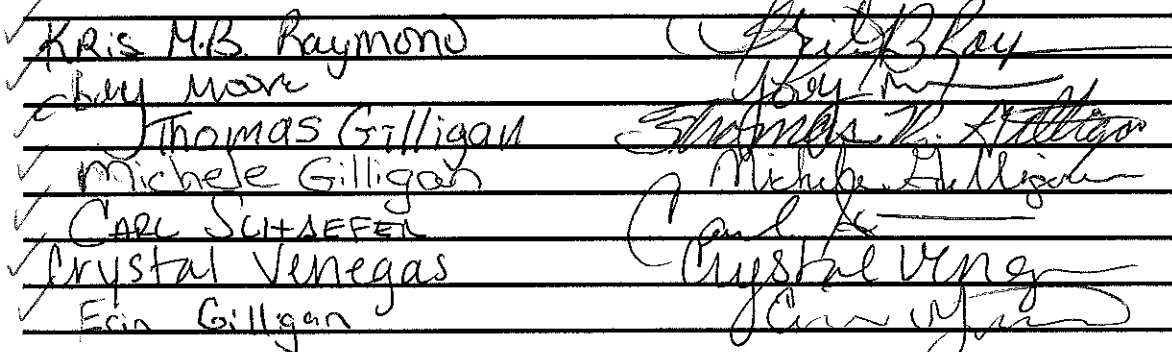 KRis M.B. Raymond Kris B Ray
Moore Joey
Thomas Gilligan Thomas R. Gilligan
Michele Gilligan Michele Gilligan
CARL SCHAEFER Carl
Crystal Venegas Crystal Veneg
Erin Gilligan Erin